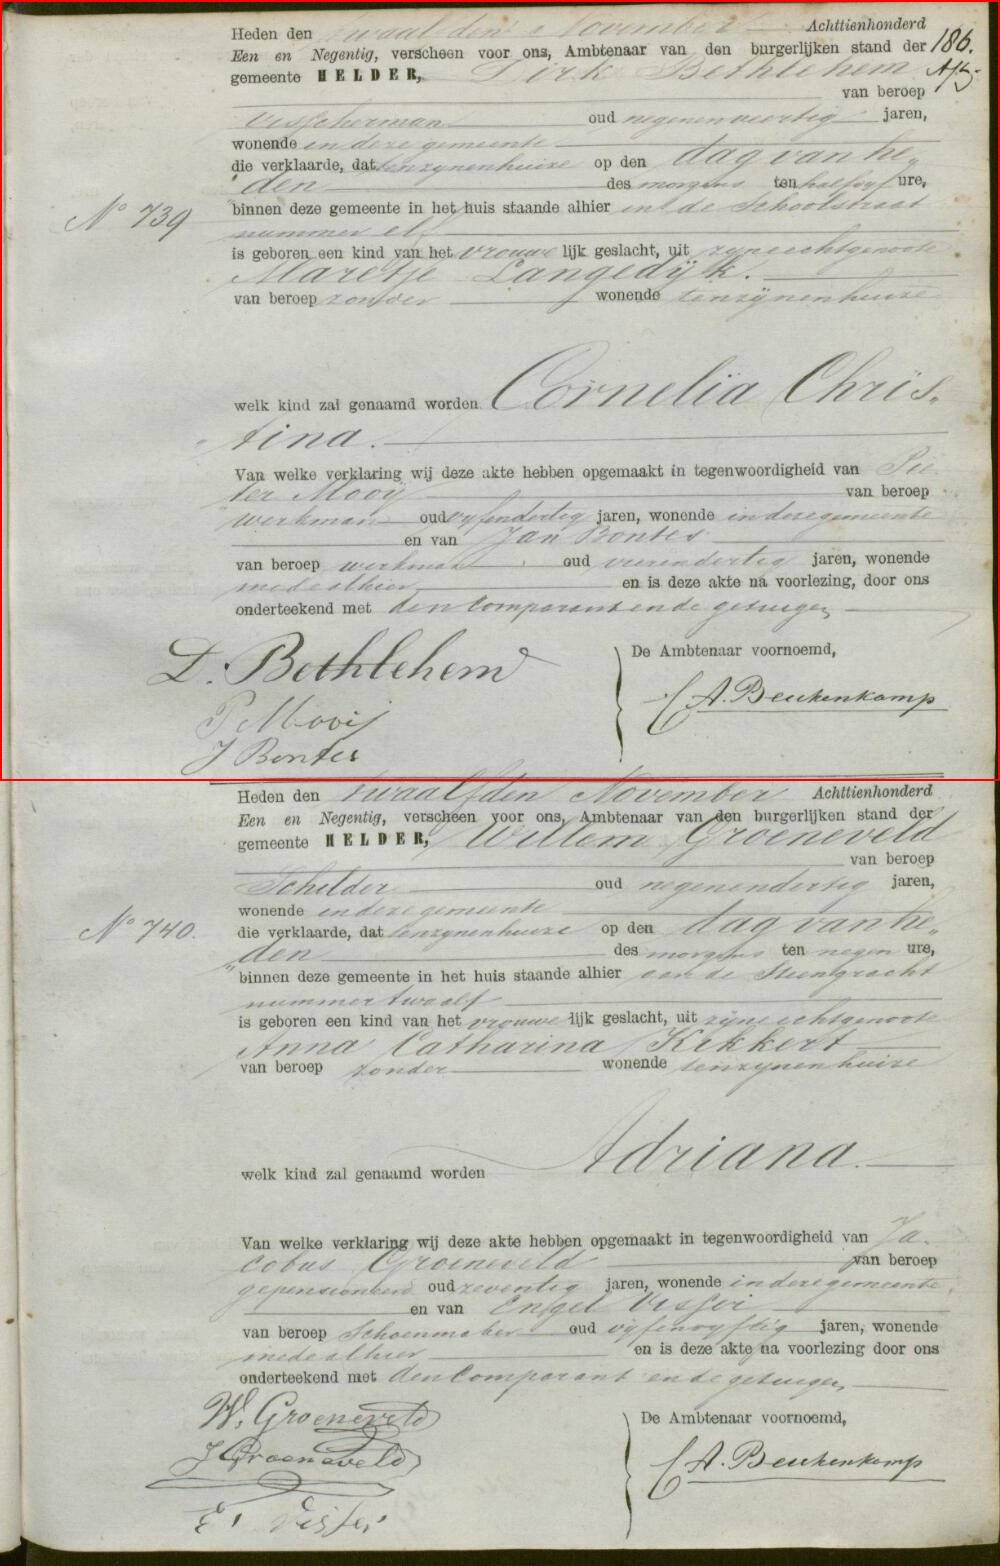 Heden den twaalfden November Achttienhonderd
Een en Negentig, verscheen voor ons, Ambtenaar van den burgerlijken stand der 186.
gemeente HELDER, Dirk Bethlehem
van beroep
visscherman oud negenenveertig jaren,
wonende in deze gemeente
die verklaarde, dat tenzynenhuize op den dag van he„
„den des morgens ten half vyf ure,
No 739
binnen deze gemeente in het huis staande alhier in de Schoolstraat
nummer elf
is geboren een kind van het vrouwe lijk geslacht, uit zyne echtgenoote
Maretje Langedijk.
van beroep zonder wonende tenzynenhuize
welk kind zal genaamd worden Cornelia Chris„
„tina.
Van welke verklaring wij deze akte hebben opgemaakt in tegenwoordigheid van Pie
ter Mooy van beroep
werkman oud vyfendertig jaren, wonende in deze gemeente
en van Jan Bontes
van beroep werkman oud vierendertig jaren, wonende
mede alhier en is deze akte na voorlezing, door ons
onderteekend met den Comparant en de getuigen
D. Bethlehem De Ambtenaar voornoemd,
P Mooij A. Beukenkamp
J Bontes
Heden den twaalfden November Achttienhonderd
Een en Negentig, verscheen voor ons, Ambtenaar van den burgerlijken stand der
gemeente HELDER, Willem Groeneveld
van beroep
Schilder oud negenendertig jaren,
wonende in deze gemeente
No 740.
die verklaarde, dat tenzynenhuize op den dag van he„
„den des morgens ten negen ure,
binnen deze gemeente in het huis staande alhier aan de Steengracht
nummer twaalf
is geboren een kind van het vrouwe lijk geslacht, uit zyne echtgenoote
Anna Catharina Kikkert
van beroep zonder wonende tenzynenhuize
welk kind zal genaamd worden Adriana.
Van welke verklaring wij deze akte hebben opgemaakt in tegenwoordigheid van Ja„
cobus Groeneveld van beroep
gepensioneerd oud zeventig jaren, wonende in deze gemeente
en van Engel Visser
van beroep Schoenmaker oud vyfenvyftig jaren, wonende
mede alhier en is deze akte na voorlezing door ons
onderteekend met den Comparant en de getuigen
W. Groeneveld De Ambtenaar voornoemd,
J Groeneveld A. Beukenkamp
E. Visser